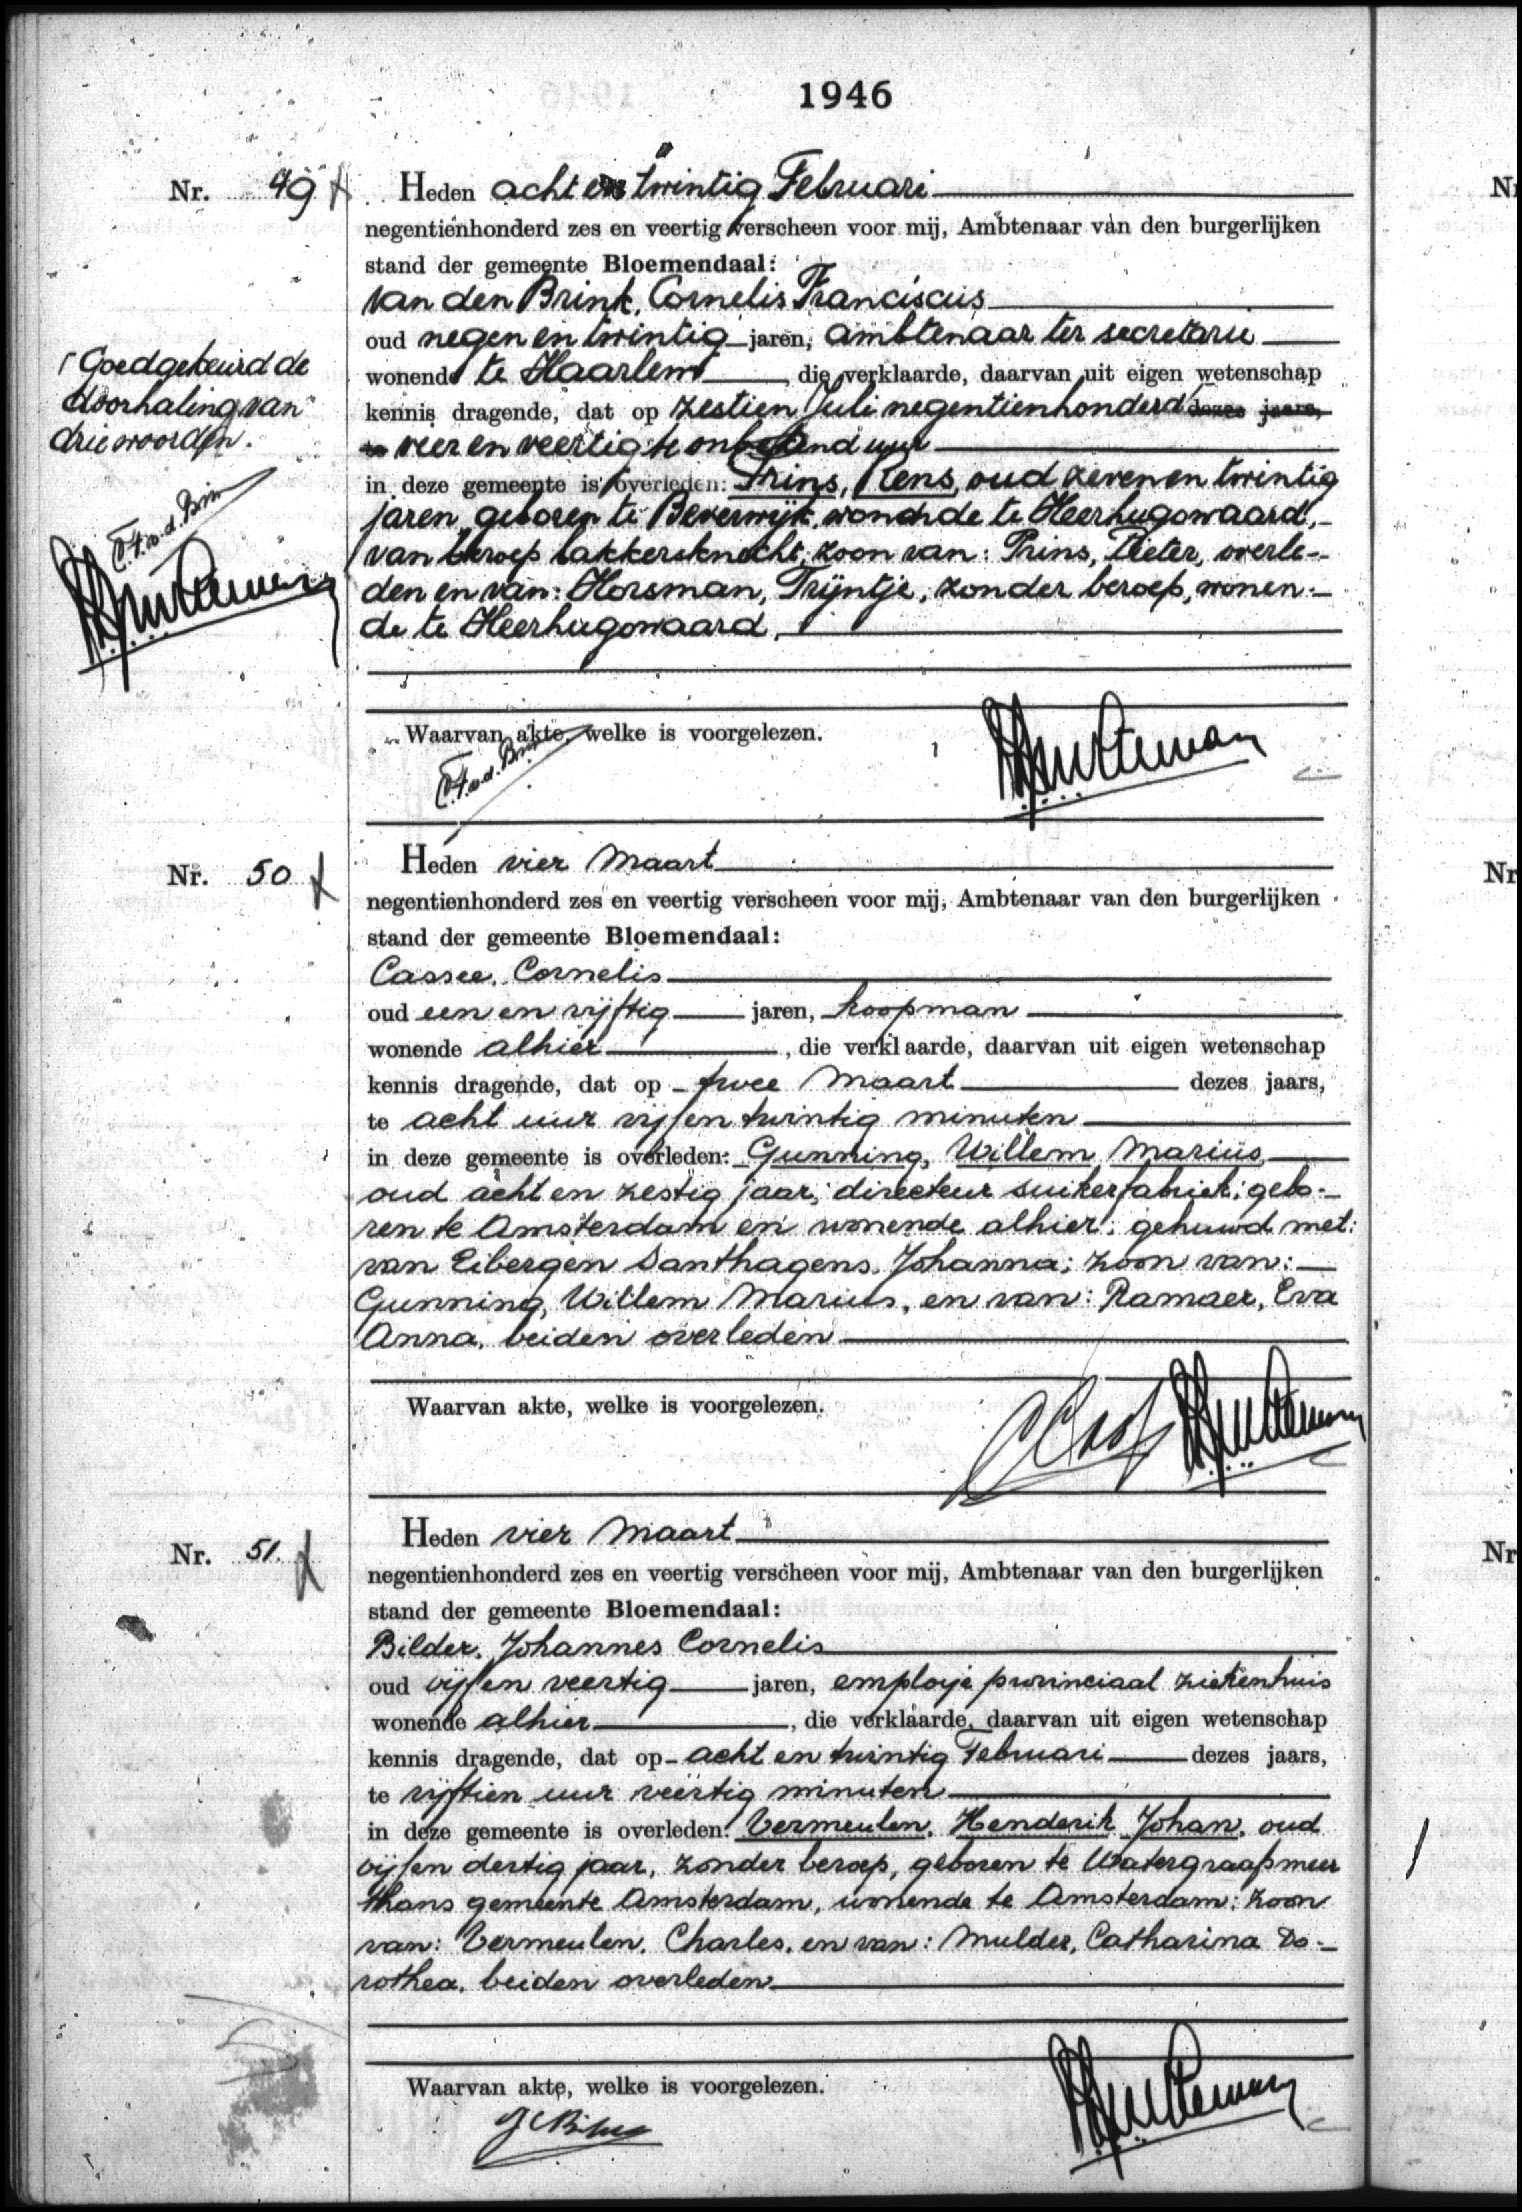 1946
Nr. 49
Heden acht en twintig Februari
negentienhonderd zes en veertig verscheen voor mij, Ambtenaar van den burgerlijken
stand der gemeente Bloemendaal:
van den Brink, Cornelis Franciscus
oud negen en twintig jaren, ambtenaar ter secretarie
wonende te Haarlem, die verklaarde, daarvan uit eigen wetenschap
kennis dragende, dat op zestien Juli negentienhonderd dezes jaars,
te vier en veertig te onbekend uur
in deze gemeente is overleden: Prins, Rens, oud zeven en twintig
jaren, geboren te Beverwijk, wonende te Heerhugowaard,
van beroep bakkersknecht, zoon van: Prins, Pieter, overle-
den en van: Horsman, Trijntje, zonder beroep, wonen-
de te Heerhugowaard.
Waarvan akte, welke is voorgelezen.
C.F.v.d. Brink
Goedgekeurd de
doorhaling van
drie woorden.
C.F.v.d. Brink
Nr. 50
Heden vier Maart
negentienhonderd zes en veertig verscheen voor mij, Ambtenaar van den burgerlijken
stand der gemeente Bloemendaal:
Cassee, Cornelis
oud een en vijftig jaren, koopman
wonende alhier, die verklaarde, daarvan uit eigen wetenschap
kennis dragende, dat op twee Maart dezes jaars,
te acht uur vijf en twintig minuten
in deze gemeente is overleden: Gunning, Willem Marius,
oud acht en zestig jaar; directeur suikerfabriek; gebo-
ren te Amsterdam en wonende alhier; gehuwd met:
van Eibergen Santhagens, Johanna; zoon van:
Gunning, Willem Marius, en van: Ramaer, Eva
Anna, beiden overleden
Waarvan akte, welke is voorgelezen.
Nr. 51.
Heden vier Maart
negentienhonderd zes en veertig verscheen voor mij, Ambtenaar van den burgerlijken
stand der gemeente Bloemendaal:
Bilder, Johannes Cornelis
oud vijf en veertig jaren, employé provinciaal ziekenhuis
wonende alhier, die verklaarde, daarvan uit eigen wetenschap
kennis dragende, dat op acht en twintig Februari dezes jaars,
te vijftien uur veertig minuten
in deze gemeente is overleden: Vermeulen, Henderik Johan, oud
vijf en dertig jaar, zonder beroep, geboren te Watergraafsmeer
thans gemeente Amsterdam, wonende te Amsterdam; zoon
van: Vermeulen, Charles, en van: Mulder, Catharina Do-
rothea, beiden overleden
Waarvan akte, welke is voorgelezen.
Nr
Nr